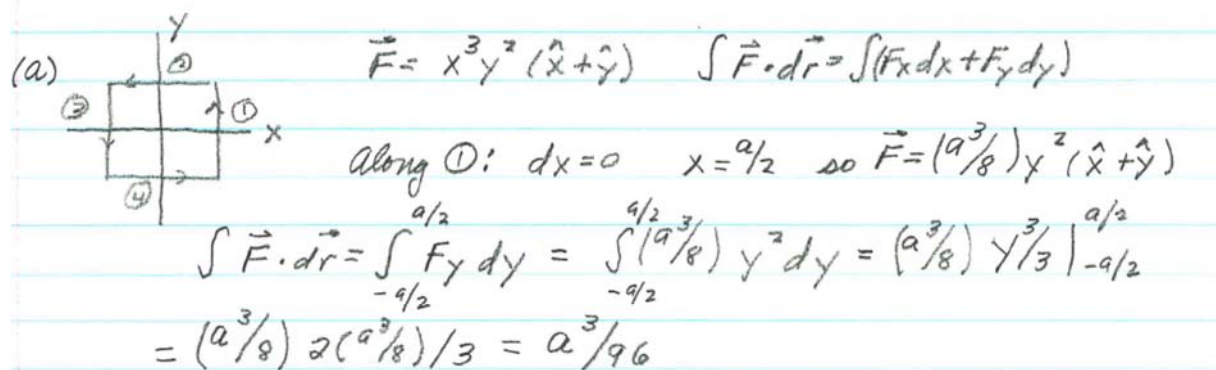 (a) Y ② ③ ① X ④
F⃗ = x³y² (x̂+ŷ) ∫ F⃗·dr⃗ = ∫(Fxdx+Fydy)
Along ①: dx=0 x=a/2 so F⃗=(a³/8)y²(x̂+ŷ)
∫ F⃗·dr⃗ = ∫_{-a/2}^{a/2} Fy dy = ∫_{-a/2}^{a/2} (a³/8) y² dy = (a³/8) y³/3 |_{-a/2}^{a/2}
= (a³/8) 2(a³/8)/3 = a³/96